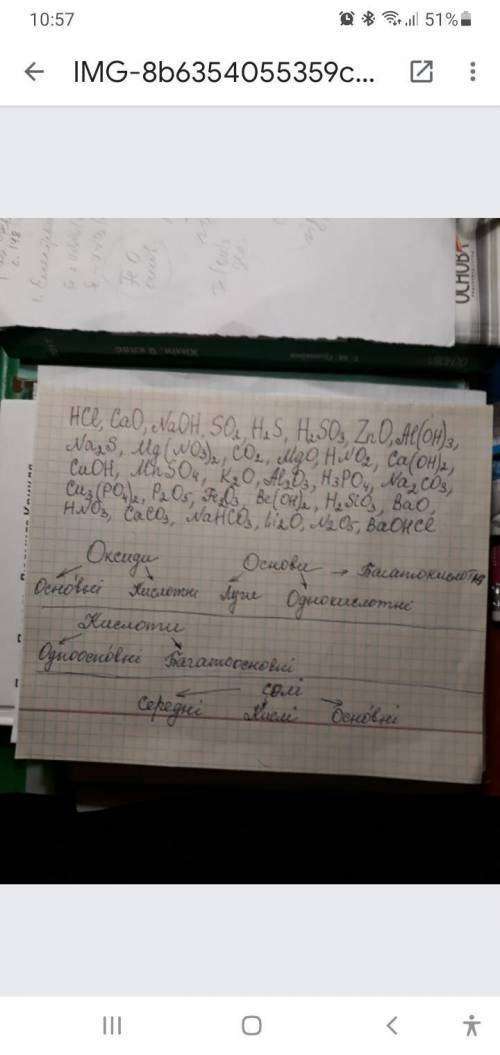 10:57
51%
IMG-8b6354055359c...
ОСНОВА
HCl, CaO, NaOH, SO₂, H₂S, H₂SO₃, ZnO, Al(OH)₃,
Na₂S, Mg(NO₃)₂, CO₂, MgO, HNO₂, Ca(OH)₂,
CuOH, MnSO₄, K₂O, Al₂O₃, H₃PO₄, Na₂CO₃,
Cu₃(PO₄)₂, P₂O₅, Fe₂O₃, Be(OH)₂, H₂SiO₃, BaO,
HNO₃, CaCO₃, NaHCO₃, Li₂O, N₂O₅, BaOHCl
Оксиди Основи → Багатокислотні
Основні Кислотні Луги Однокислотні
Кислоти
Одноосновні Багатоосновні
солі
Середні Кислі Основні